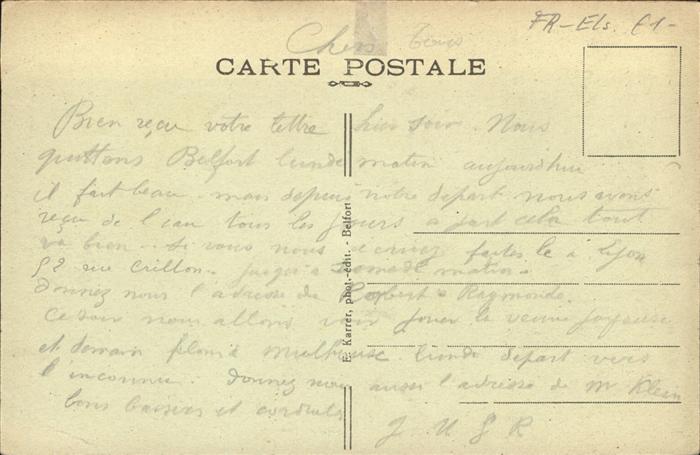 FR-Els. £1-
Chers Tous
CARTE POSTALE
Bien reçu votre lettre hier soir. Nous
quittons Belfort lundi matin aujourdhui
il fait beau. mais depuis notre depart nous avons
reçu de l'eau tous les jours a part cela tout
va bien. Si vous nous ecrivez faites le a Lyon
52 rue Crillon. jusqu'a Samedi matin.
donnez nous l'adresse de Robert & Raymonde.
Ce soir nous allons voir jouer la veuve joyeuse
et demain Mulhouse. lundi depart vers
l'inconnu. Donnez nous aussi l'adresse de Mr Klein
bons baisers et cordiales
E. Karrer, phot.-édit. - Belfort